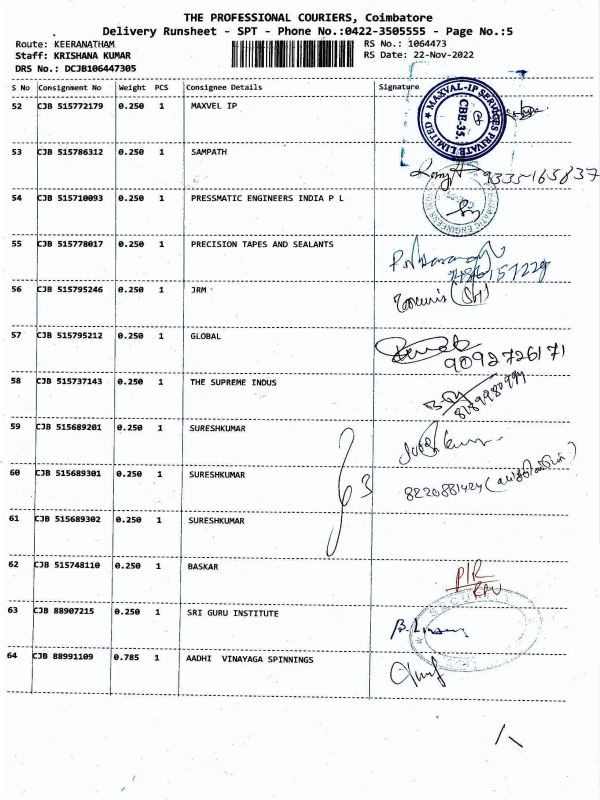 THE PROFESSIONAL COURIERS, Coimbatore
Delivery Runsheet - SPT - Phone No.:0422-3505555 - Page No.:5
Route: KEERANATHAM
RS No.: 1064473
Staff: KRISHANA KUMAR
RS Date: 22-Nov-2022
DRS No.: DCJB106447305
S No Consignment No Weight PCS Consignee Details Signature
52 CJB 515772179 0.250 1 MAXVEL IP
MAXVAL-IP SERVICES PRIVATE LIMITED
CBE-35.
53 CJB 515786312 0.250 1 SAMPATH
9335165837
54 CJB 515710093 0.250 1 PRESSMATIC ENGINEERS INDIA P L
55 CJB 515778017 0.250 1 PRECISION TAPES AND SEALANTS
56 CJB 515795246 0.250 1 JRM
57 CJB 515795212 0.250 1 GLOBAL
9092726171
58 CJB 515737143 0.250 1 THE SUPREME INDUS
8189980994
59 CJB 515689201 0.250 1 SURESHKUMAR
60 CJB 515689301 0.250 1 SURESHKUMAR
63
8220881424
61 CJB 515689302 0.250 1 SURESHKUMAR
62 CJB 515748110 0.250 1 BASKAR
P/R
63 CJB 88907215 0.250 1 SRI GURU INSTITUTE
64 CJB 88991109 0.785 1 AADHI VINAYAGA SPINNINGS